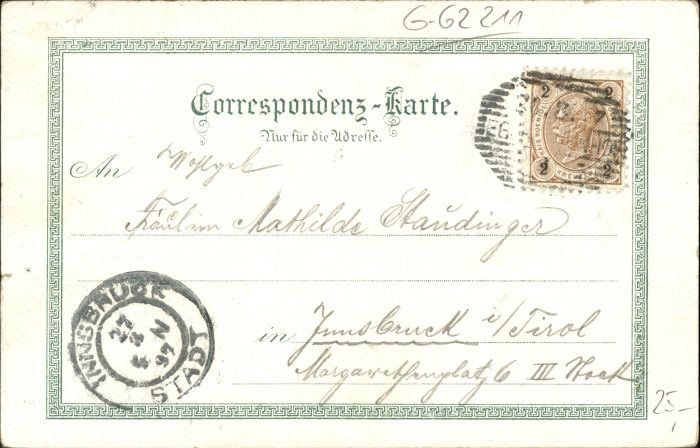 G-62211
Correspondenz-Karte.
Nur für die Adresse.
An Wohlgeb
Fräulein Mathilde Staudinger
in Innsbruck i/Tirol
Margarethenplatz 6 III Stock
25,-
2 2
2 2
INNSBRUCK
STADT